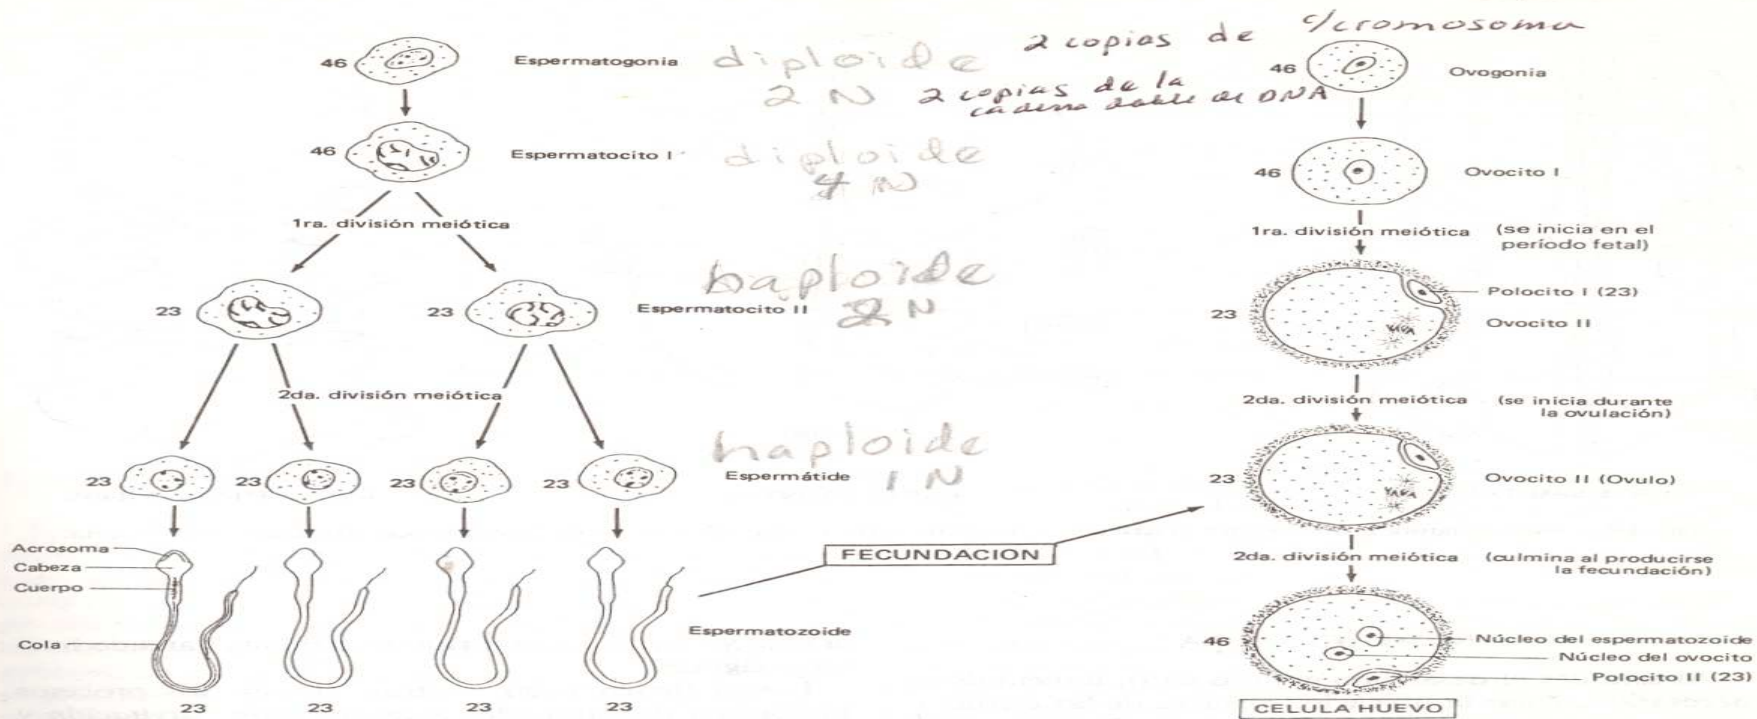 46
Espermatogonia
diploide
2 N
2 copias de c/cromosoma
2 copias de la
cadena doble de DNA
46
Espermatocito I
diploide
4 N
1ra. división meiótica
23
23
Espermatocito II
haploide
2 N
2da. división meiótica
23
23
23
23
Espermátide
haploide
1 N
Acrosoma
Cabeza
Cuerpo
Cola
Espermatozoide
23
23
23
23
FECUNDACION
46
Ovogonia
46
Ovocito I
1ra. división meiótica
(se inicia en el
período fetal)
23
Polocito I (23)
Ovocito II
2da. división meiótica
(se inicia durante
la ovulación)
23
Ovocito II (Ovulo)
2da. división meiótica
(culmina al producirse
la fecundación)
46
Núcleo del espermatozoide
Núcleo del ovocito
Polocito II (23)
CELULA HUEVO